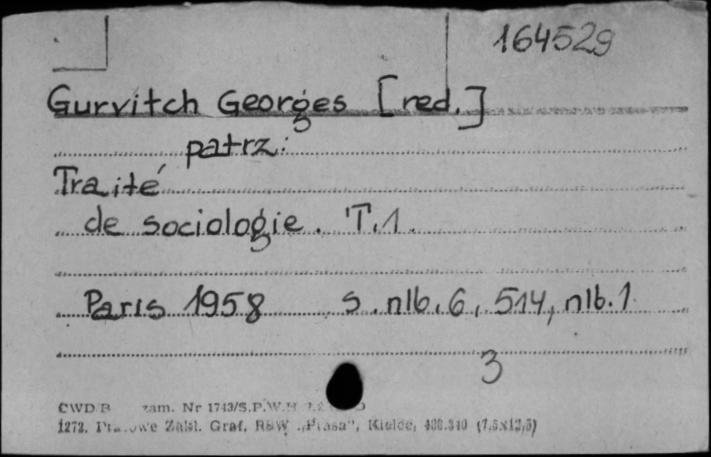 164529
Gurvitch Georges [red.]
patrz:
Traité
de sociologie. T.1.
Paris 1958 s. nlb. 6, 514, nlb. 1
3
CWD/B zam. Nr 1743/S.P.W.H
1272. Prasowe Zakł. Graf. RSW „Prasa", Kielce, (7,5x12,5)